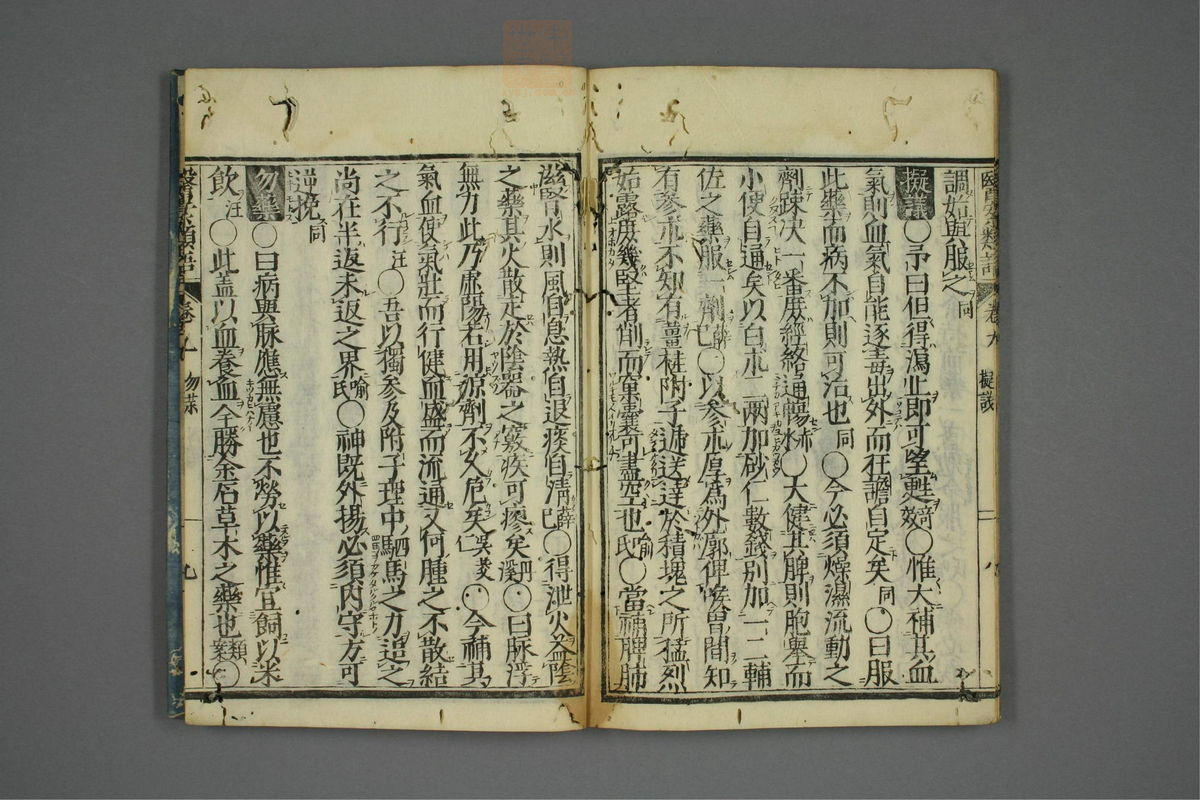 調始與服之同
擬議〇予曰但得瀉止即可望甦奇效〇惟大補其血
氣則血氣自能逐毒出外而狂譫自定矣同〇曰服
此藥而病不加則可治也同〇今必須燥濕流動之
劑疎决一番庶經絡通暢水〇大健其脾則胞舉而
小便自通矣以白朮二兩加砂仁數錢別加一二輔
佐之藥服一劑薛已〇以參朮厚為外廓俾喉胃間知
有參朮不知有薑桂附子遞送達於積塊之所猛烈
始露庶幾堅者削而窠囊可盡空也喻氏〇當補脾肺
滋腎水則風自息熱自退痰自清薛已〇得泄火益陰
之藥其火散走於陰器之竅疾可瘳矣丹溪〇曰脉浮
無力此乃虛陽若用凉劑不久危矣吳茭〇今補其
氣血使氣壯而行健血盛而流通又何腫之不散結
之不行汪〇吾以獨參及附子理中駟馬之力追之
尚在半返未返之界喻氏〇神既外揚必須內守方可
逆挽同
勿藥〇曰病與脉應無慮也不勞以藥惟宜飼以米
飲汪〇此蓋以血養血全勝金石草木之藥也類案〇
卷九 勿藥 九